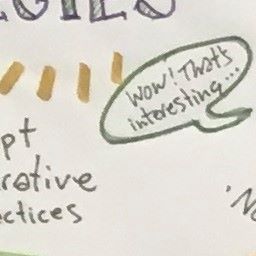 GIES
WOW! That's
interesting...
pt
rative
ctices
'No